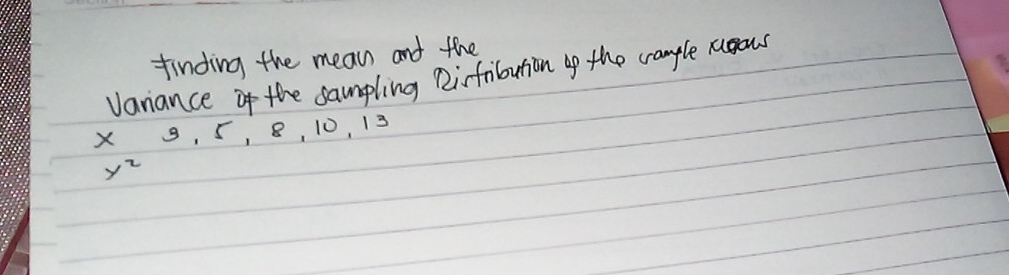 Finding the mean and the
Variance of the sampling Distribution of the sample Means
X 3, 5, 8, 10, 13
x²